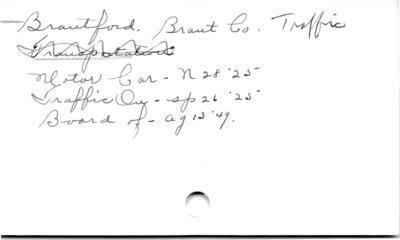 Brantford. Brant Co. Traffic
Transportation
Motor Car - N 28 '25
Traffic On - Sp 26 '25
Board of - Ag 13 '49.